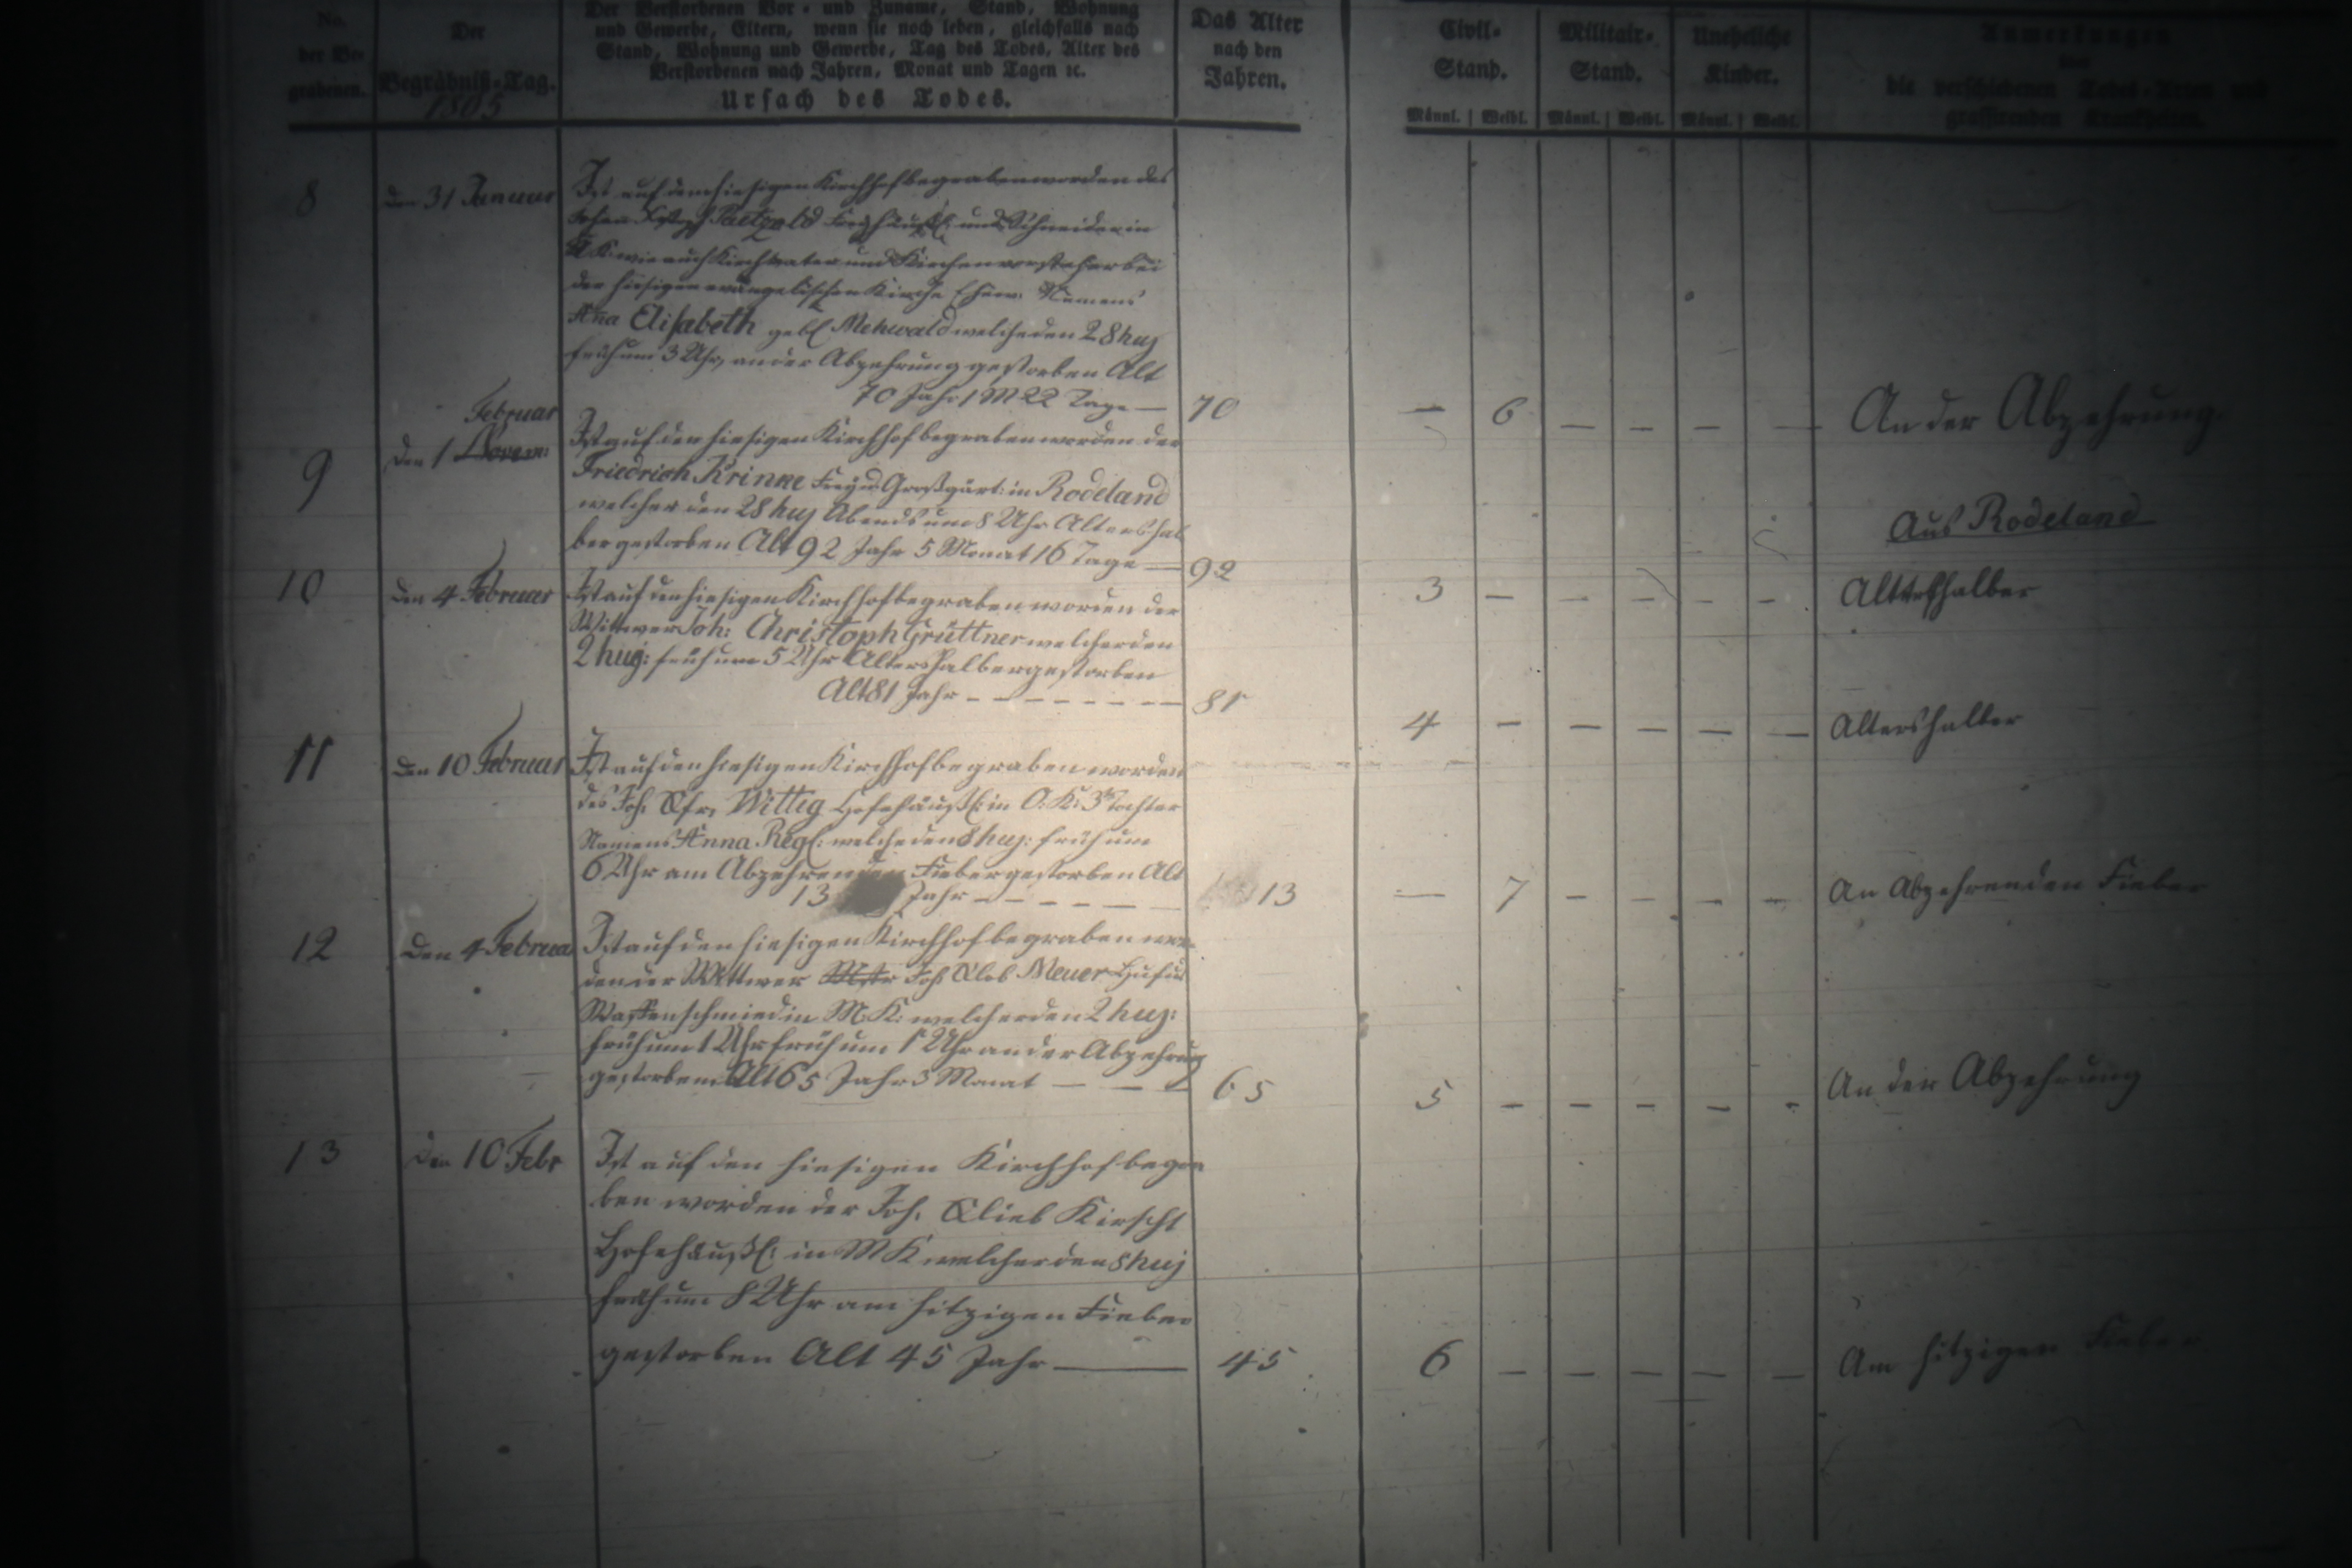 No. der Be- grabenen.
Der Begräbniß-Tag. 1805
Der Verstorbenen Vor- und Zuname, Stand, Wohnung
und Gewerbe, Eltern, wenn sie noch leben, gleichfalls nach
Stand, Wohnung und Gewerbe, Tag des Todes, Alter des
Verstorbenen nach Jahren, Monat und Tagen ꝛc.
Ursach des Todes.
Das Alter nach den Jahren.
Civil- Stand.
Militair- Stand.
Uneheliche Kinder.
Anmerkungen
über
die verschiedenen Todes-Arten und
grassirenden Krankheiten.
Männl. Weibl. Männl. Weibl. Männl. Weibl.
8 den 31 Januar Ist auf dem hiesigen Kirchhof begraben worden des
Paetzold und Schneider in
wie auch Kirchvater und Kirchenvorsteher bei
der hiesigen evangelischen Kirche Namens
Aña Elisabeth geb Mehwald welche den 28 huj
früh um 3 Uhr, an der Abzehrung gestorben Alt
70 Jahr 1 M 22 Tage — 70 — 6 — — — — An der Abzehrung.
Februar
9 den 1 Novem: Ist auf den hiesigen Kirchhof begraben worden der
Friedrich Krinne Großgärt: in Rodeland
welcher den 28 huj Abends um 8 Uhr Altershal
ber gestorben Alt 92 Jahr 5 Monat 16 Tage — 92 3 — — — — —
Aus Rodeland
Altershalber
10 den 4 Februar Ist auf den hiesigen Kirchhof begraben worden der
Wittwer Joh: Christoph Grüttner welcher den
2 huj: früh um 5 Uhr Altershalber gestorben
Alt 81 Jahr — 81 4 — — — — — Altershalber
11 den 10 Februar Ist auf den hiesigen Kirchhof begraben worden
des Joh. Gfr. Wittig Hofehäußl: in O: K: 3te Tochter
Namens Anna Regl: welche den 8 huj: früh um
6 Uhr am Abzehrenden Fieber gestorben Alt
13 Jahr — 13 — 7 — — — — An Abzehrenden Fieber
12 Den 4 Februar Ist auf den hiesigen Kirchhof begraben wor-
den der Wittwer Joh. Glob Meuer Huf und
Waffenschmied in M: K: welcher den 2 huj:
früh um 1 Uhr früh um 1 Uhr an der Abzehrung
gestorben Alt 65 Jahr 3 Monat — 65 5 — — — — — An der Abzehrung
13 Den 10 Febr Ist auf den hiesigen Kirchhof begra
ben worden der Joh. Glieb Kirscht
Hofehäußl: in M K welcher den 8 huj
früh um 8 Uhr am hitzigen Fieber
gestorben Alt 45 Jahr — 45 6 — — — — — Am hitzigen Fieber